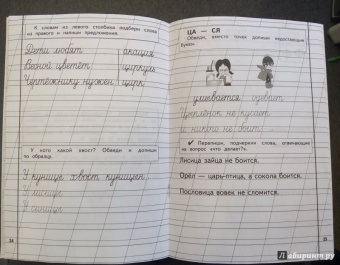 К словам из левого столбика подбери слова
из правого и напиши предложения.
Дети любят акация
Весной цветёт циркуль
Чертёжнику нужен цирк
У кого какой хвост? Обведи и допиши
по образцу.
У куницы хвост куницын
У лисицы
У синицы
34
ЦА — СЯ
Обведи, вместо точек допиши недостающие
буквы.
умывается одевает
Цыплёнок не кусает
и никто не боит
Перепиши, подчеркни слова, отвечающие
на вопрос «что делает?».
Лисица зайца не боится.
Орёл — царь-птица, а сокола боится.
Пословица вовек не сломится.
35
Лабиринт.ру